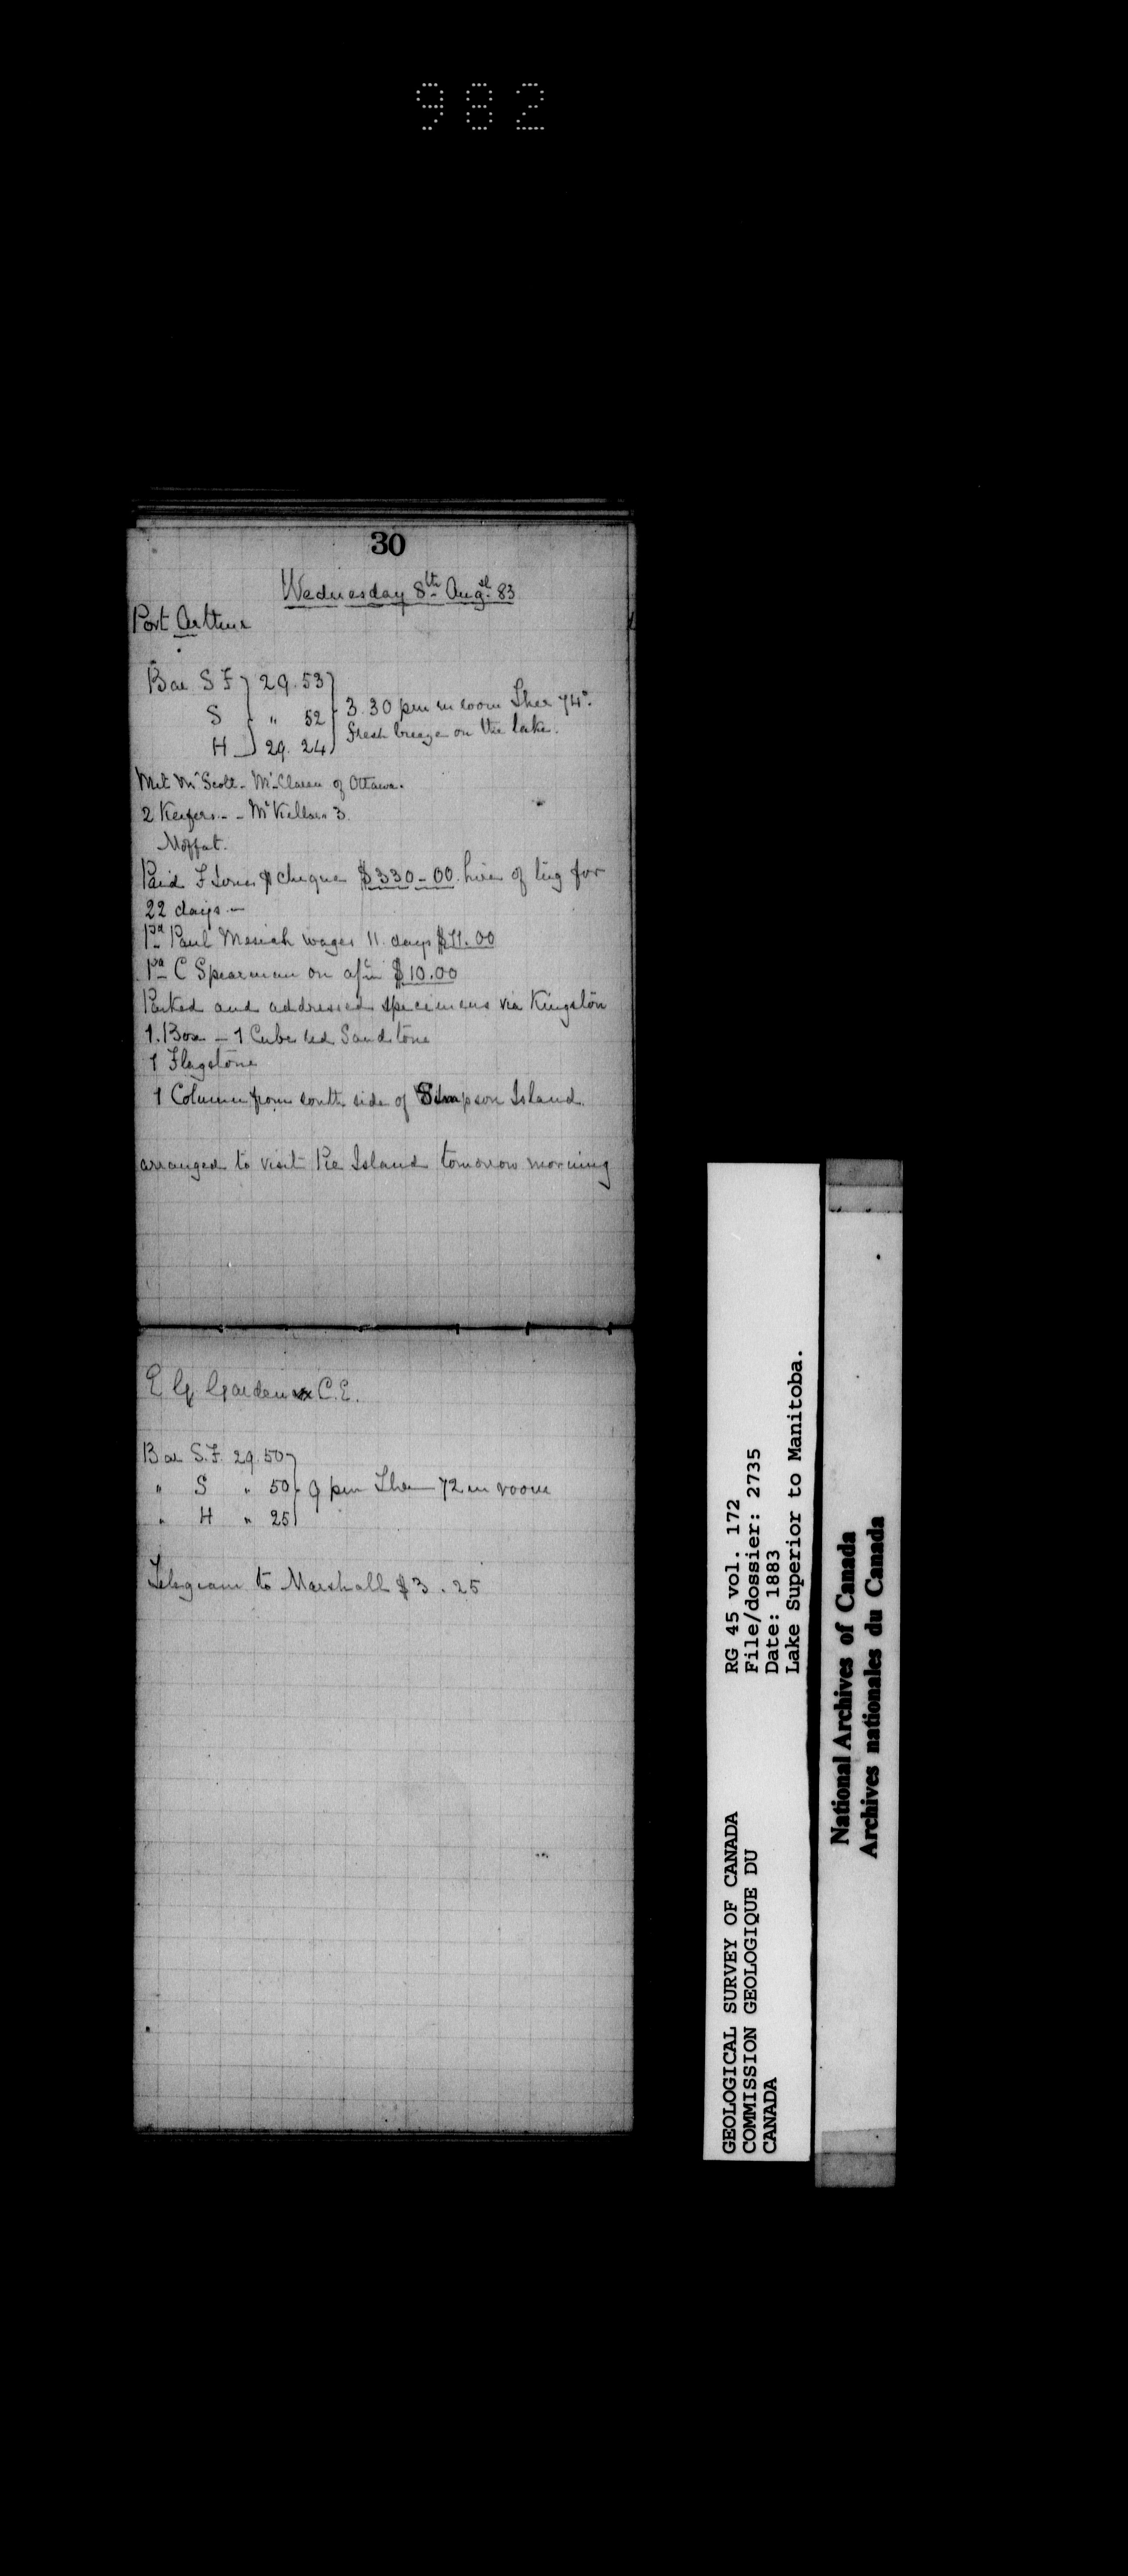 982
30
Wednesday 8th Augst. 83
Port Arthur
Bar S F } 29.53 }
S } " 52 } 3.30 pm in room Ther 74°.
H } 29.24 } Fresh breeze on the lake.
Met Mr Scott - McClaren of Ottawa.
2 Keefers - - McKellars 3
Moffat.
Paid F Jones cheque $330-00 hire of tug for
22 days -
Pd Paul wages 11 days $11.00
Pd C Spearman on a/c $10.00
Packed and addressed specimens via Kingston
1. Box - 1 Cube red Sandstone
1 Flagstone
1 Column from south side of Simpson Island.
arranged to visit Pie Island tomorrow morning
E G Garden C.E.
Bar S.F. 29.50 }
" S " 50 } 9 pm Ther 72 in room
" H " 25 }
Telegram to Marshall $3.25
GEOLOGICAL SURVEY OF CANADA
COMMISSION GEOLOGIQUE DU
CANADA
RG 45 vol. 172
File/dossier: 2735
Date: 1883
Lake Superior to Manitoba.
National Archives of Canada
Archives nationales du Canada